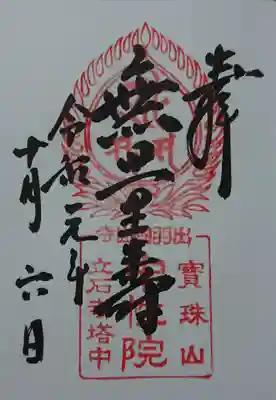 奉
無量壽
令和元年
十月六日
寶珠山
院
立石寺塔中